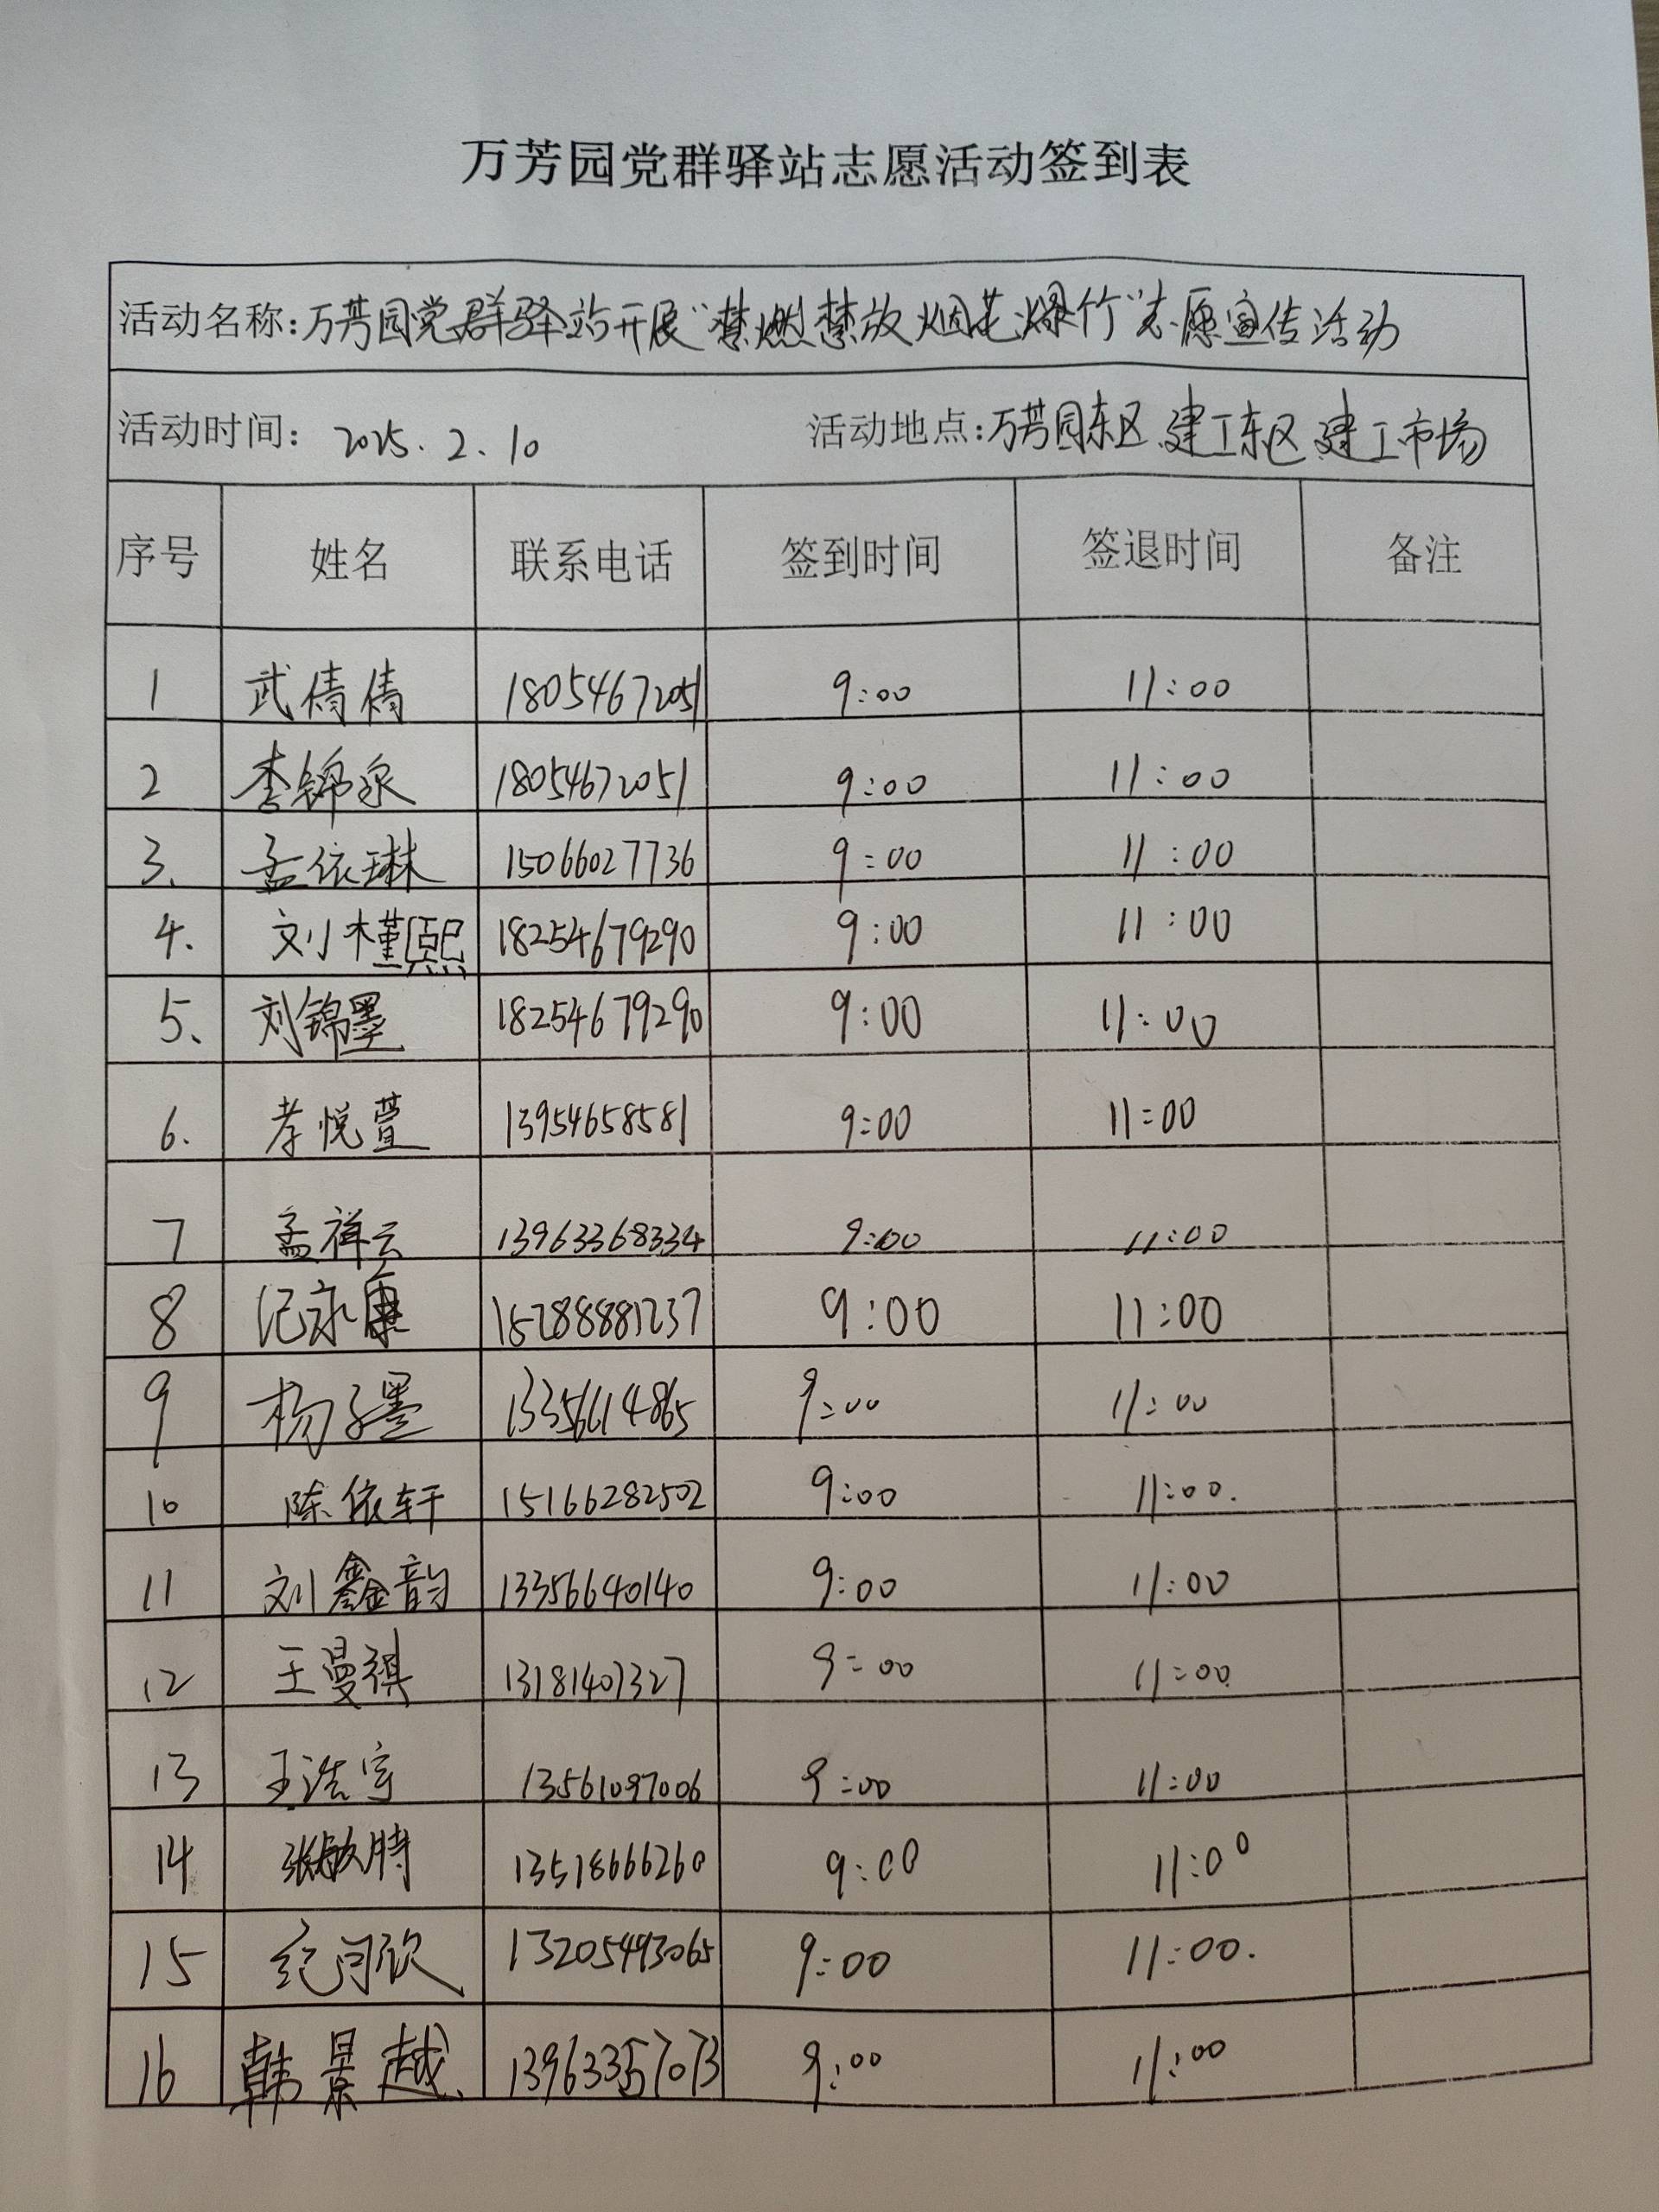 万芳园党群驿站志愿活动签到表
活动名称:万芳园党群驿站开展“禁燃禁放烟花爆竹”志愿宣传活动
活动时间: 2025.2.10 活动地点:万芳园东区 建工东区 建工市场
序号 姓名 联系电话 签到时间 签退时间 备注
1 武倩倩 18054672051 9:00 11:00
2 李锦泉 18054672051 9:00 11:00
3. 孟依琳 15066027736 9:00 11:00
4. 刘槿熙 18254679290 9:00 11:00
5、 刘锦墨 18254679290 9:00 11:00
6. 李悦萱 13954658581 9:00 11:00
7 孟祥云 13963368334 9:00 11:00
8 纪永康 15288881237 9:00 11:00
9 杨子墨 13356614865 9:00 11:00
10 陈依轩 15166282502 9:00 11:00.
11 刘鑫韵 13356640140 9:00 11:00
12 王曼祺 13181407327 9:00 11:00
13 王浩宇 13561097006 9:00 11:00
14 13518666260 9:00 11:00
15 13205493065 9:00 11:00.
16 韩景越 13963357073 9:00 11:00